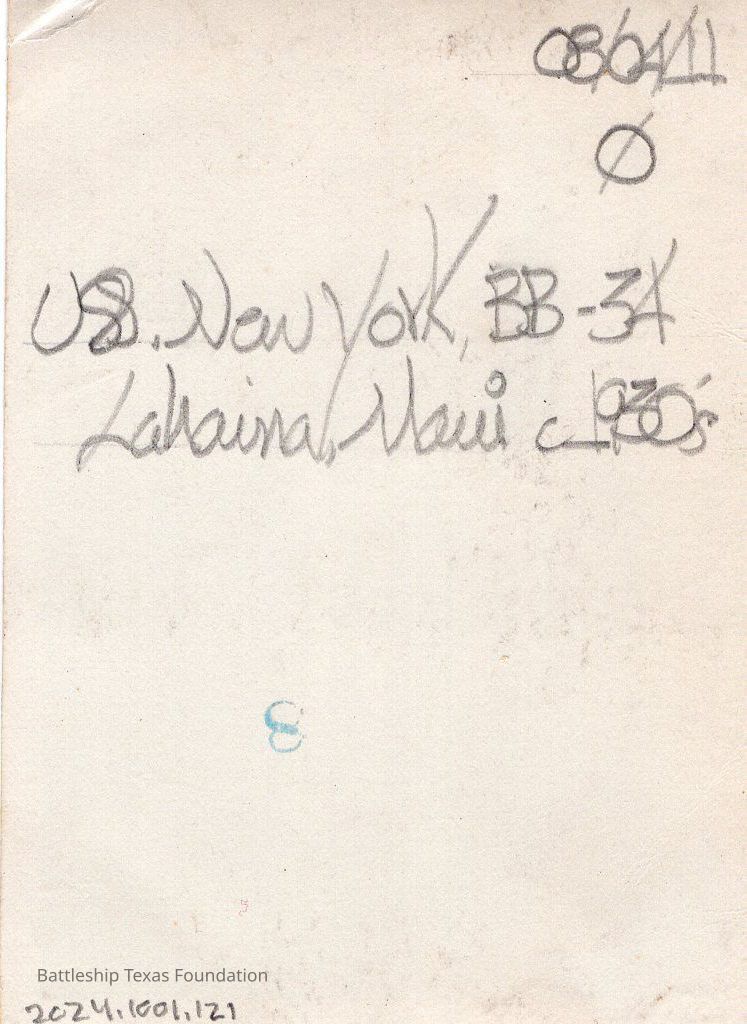 08/04/11
Ø
USS. New York, BB-34
Lahaina, Maui c_1930's
8
Battleship Texas Foundation
2024.1001.121